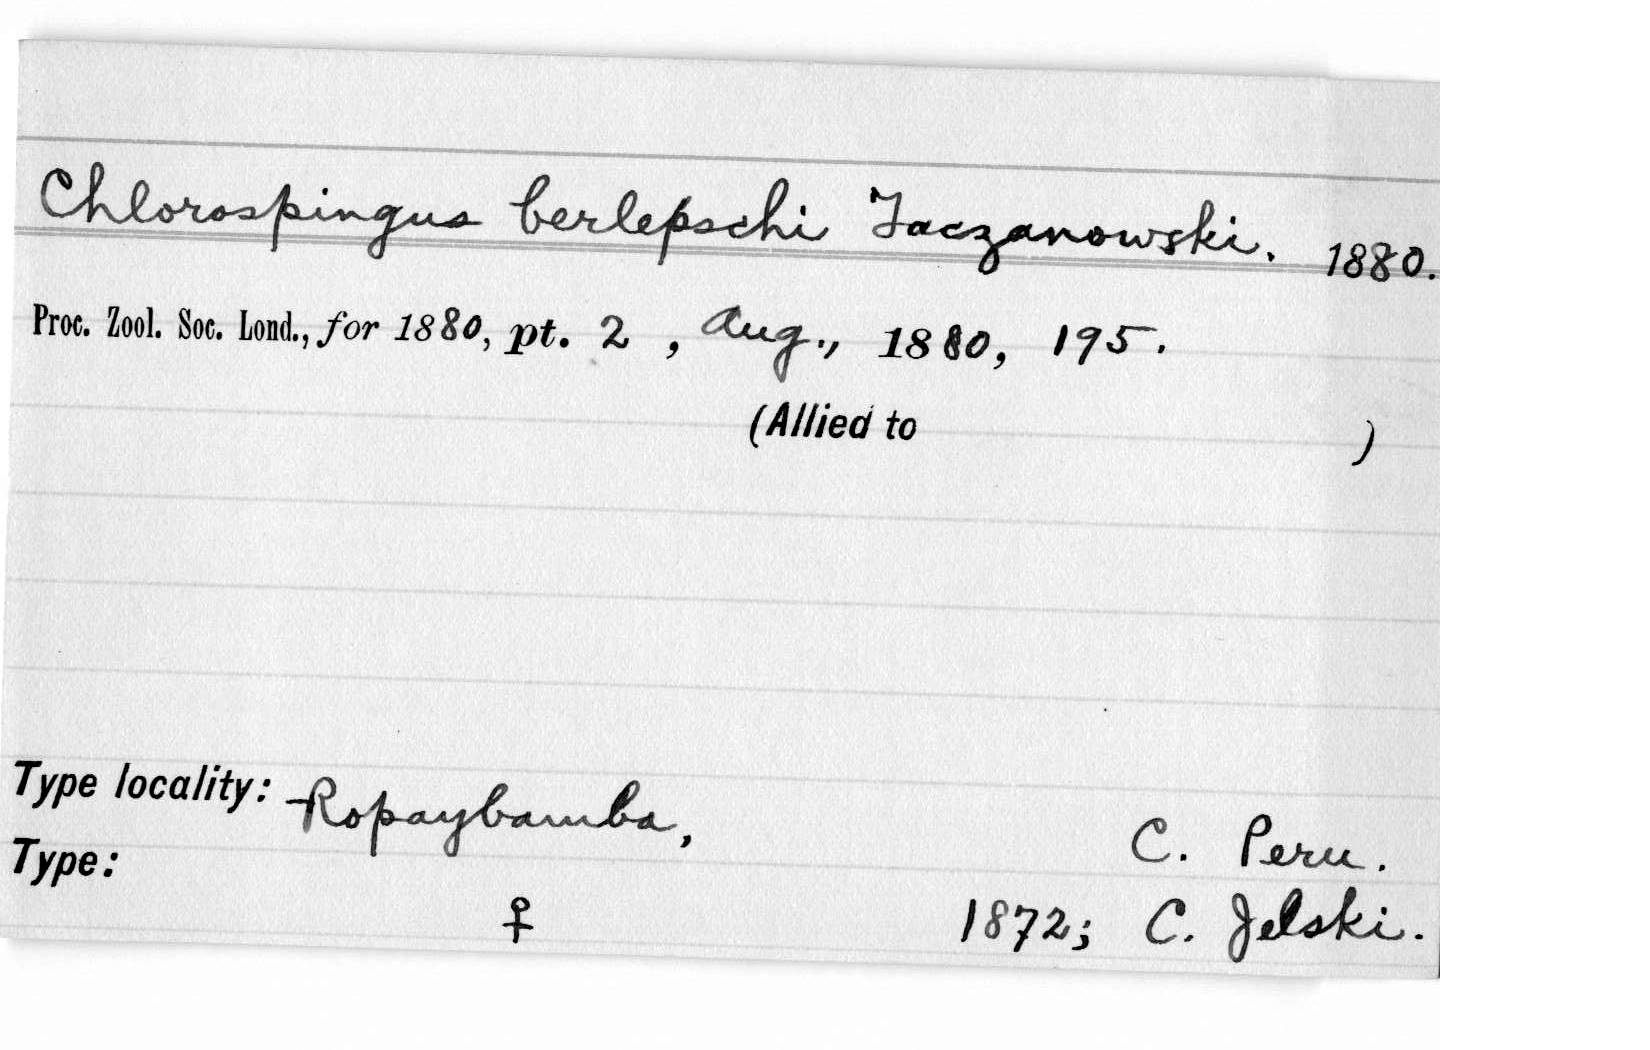 Chlorospingus berlepschi Taczanowski. 1880.
Proc. Zool. Soc. Lond., for 1880, pt. 2, Aug., 1880, 195.
(Allied to )
Type locality: Ropaybamba, C. Peru.
Type:
♀ 1872; C. Jelski.